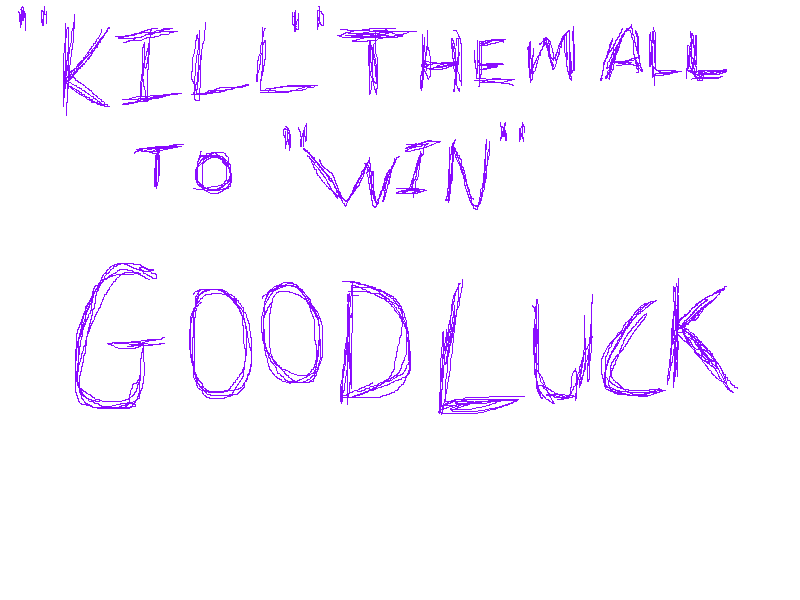 "KILL" THEM ALL
TO "WIN"
GOOD LUCK